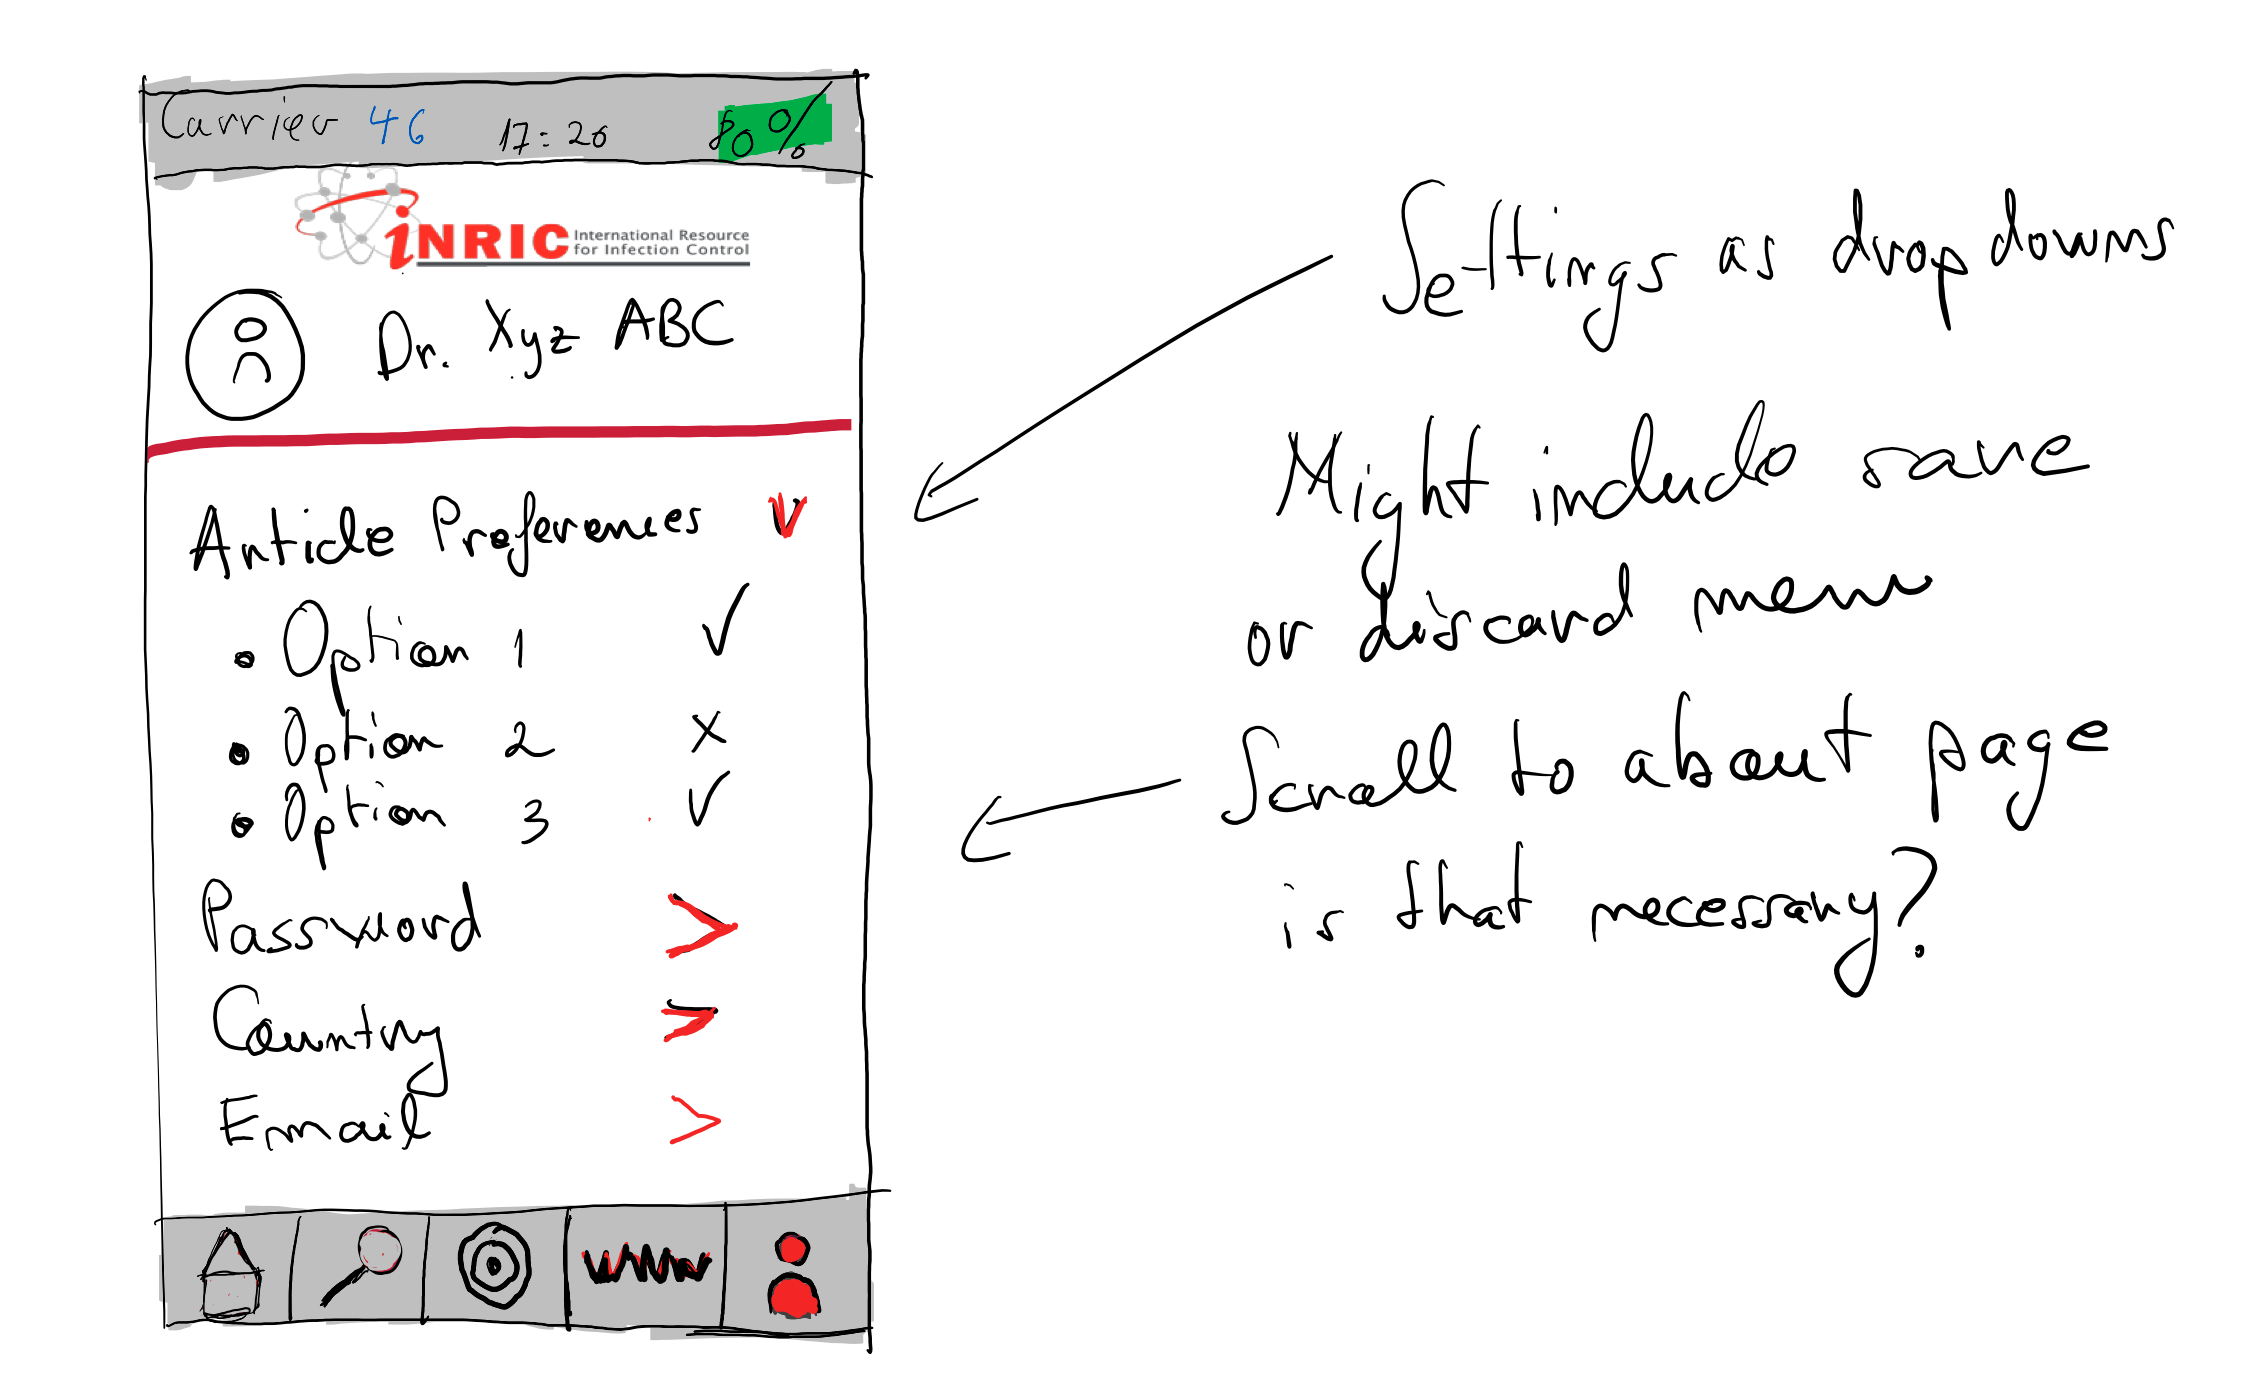 Carrier 4G 17:26 80%
iNRIC International Resource
for Infection Control
Dr. Xyz ABC
Article Preferences
• Option 1
• Option 2
• Option 3
Password
Country
Email
www
Settings as drop downs
Might include save
or discard menu
Scroll to about page
is that necessary?